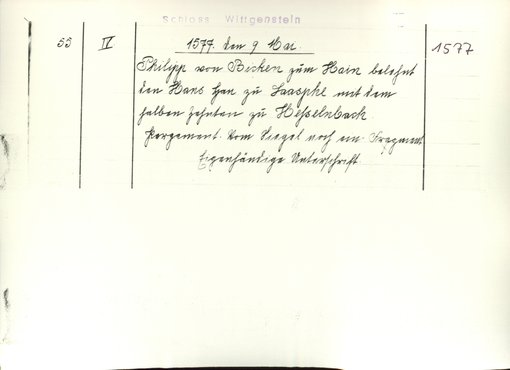 Schloss Wittgenstein
55 IV 1577. den 9 Mai. 1577
Philipp von Bicken zum Hain belehnt
den Hans Han zu Laasphe mit dem
halben Zehnten zu Hesselnbach
Pergament. Vom Siegel noch ein Fragment
Eigenhändige Unterschrift